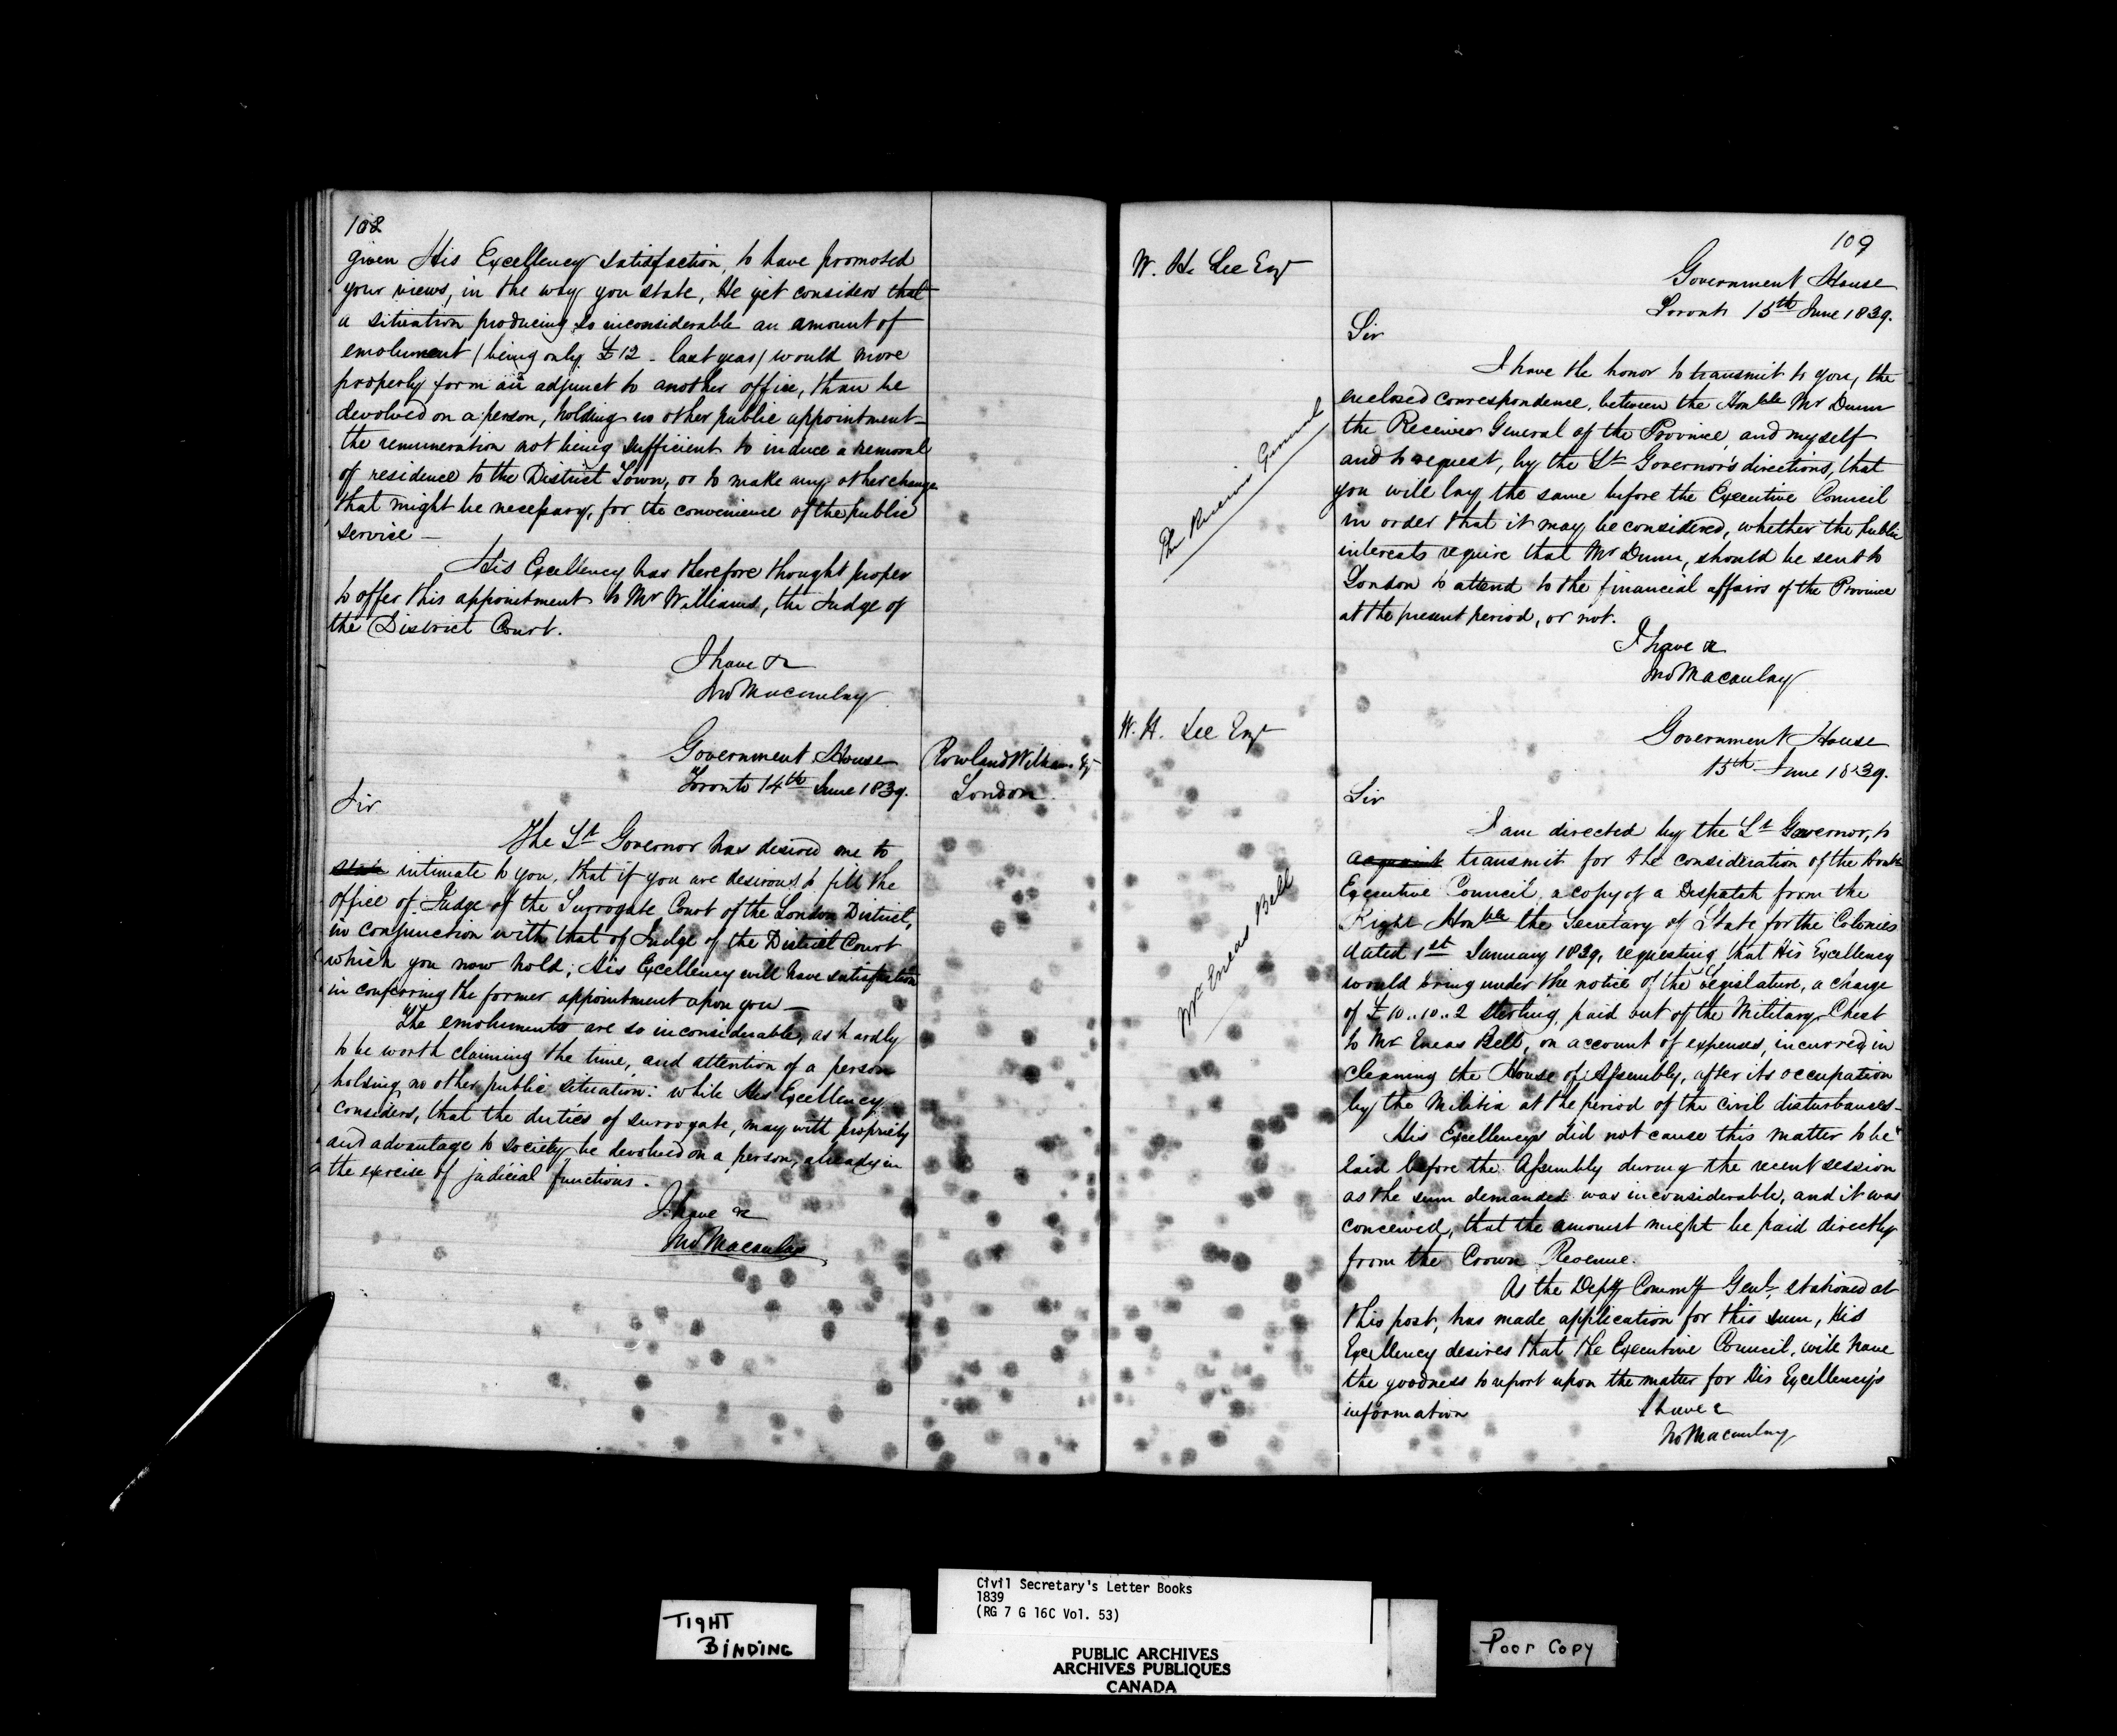 108
given His Excellency satisfaction, to have promoted
your views, in the way you state, He yet considers that
a situation producing so inconsiderable an amount of
emolument (being only £12 - last year) would more
properly form an adjunct to another office, than be
devolved on a person, holding no other public appointment -
the remuneration not being sufficient to induce a removal
of residence to the District Town, or to make any other change
that might be necessary, for the convenience of the public
service -
His Excellency has therefore thought proper
to offer this appointment to Mr Williams, the Judge of
the District Court.
I have &c
Jno Macaulay
Government House
Toronto 14th June 1839.
Rowland Williams Esq
London
Sir
The Lt Governor has desired me to
state intimate to you, that if you are desirous to fill the
office of Judge of the Surrogate Court of the London District,
in conjunction with that of Judge of the District Court
which you now hold, His Excellency will have satisfaction
in conferring the former appointment upon you -
The emoluments are so inconsiderable, as hardly
to be worth claiming the time, and attention of a person
holding no other public situation: while His Excellency
considers, that the duties of surrogate, may with propriety
and advantage to society be devolved on a person, already in
the exercise of judicial functions.
I have &c
Jno Macaulay
109
W. H. Lee Esqr
The Receiver General
Government House
Toronto 15th June 1839.
Sir
I have the honor to transmit to you, the
enclosed correspondence, between the Honble Mr Dunn
the Receiver General of the Province, and myself
and to request, by the Lt Governor's directions, that
you will lay the same before the Executive Council
in order that it may be considered, whether the public
interests require that Mr Dunn, should be sent to
London to attend to the financial affairs of the Province
at the present period, or not.
I have &c
Jno Macaulay
W. H. Lee Esqr
Mr Eneas Bell
Government House
15th June 1839.
Sir
I am directed by the Lt Governor, to
acquaint transmit for the consideration of the Honble
Executive Council, a copy of a Despatch from the
Right Honble the Secretary of State for the Colonies
dated 1st January 1839, requesting that His Excellency
would bring under the notice of the Legislature, a charge
of £10..10..2 sterling, paid out of the Military Chest
to Mr Eneas Bell, on account of expenses, incurred in
cleaning the House of Assembly, after its occupation
by the Militia at the period of the civil disturbances -
His Excellency did not cause this matter to be
laid before the Assembly during the recent session
as the sum demanded was inconsiderable, and it was
conceived, that the amount might be paid directly
from the Crown Revenue.
As the Depy Commy Genl, stationed at
this post, has made application for this sum, His
Excellency desires that the Executive Council, will have
the goodness to report upon the matter for His Excellency's
information
I have &
Jno Macaulay
TIGHT
BINDING
Civil Secretary's Letter Books
1839
(RG 7 G 16C Vol. 53)
PUBLIC ARCHIVES
ARCHIVES PUBLIQUES
CANADA
Poor Copy